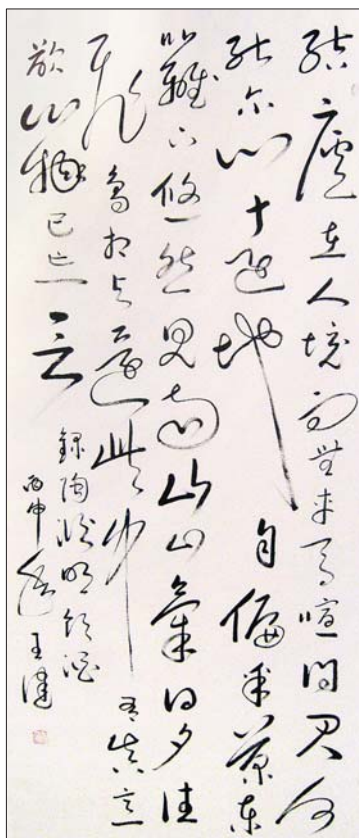 結廬在人境而無車馬喧問君何
能尔心遠地自偏采菊東
籬下悠然見南山山氣日夕佳
飛鳥相與還此中有真意
欲辨已忘言
錄陶淵明飲酒
丙申 王